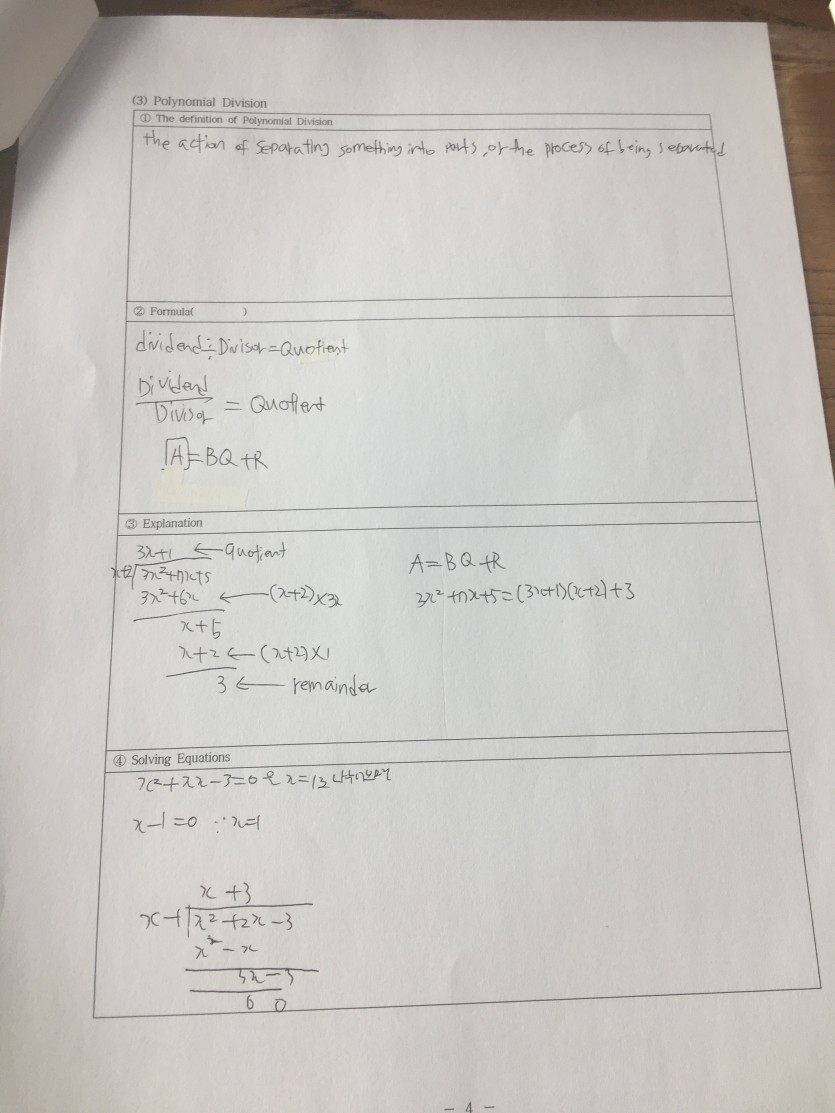 (3) Polynomial Division
① The definition of Polynomial Division
the action of separating something into parts, or the process of being separated
② Formula( )
dividend÷Divisor=Quotient
Dividend
Divisor = Quotient
A=BQ+R
③ Explanation
3x+1 ← quotient
x+2 3x²+7x+5
3x²+6x ← (x+2)×3x
x+5
x+2 ← (x+2)×1
3 ← remainder
A=BQ+R
3x²+7x+5=(3x+1)(x+2)+3
④ Solving Equations
x²+2x-3=0을 x=1로 나누면
x-1=0 ∵x=1
x +3
x-1 x²+2x-3
x²-x
3x-3
0 0
- 4 -